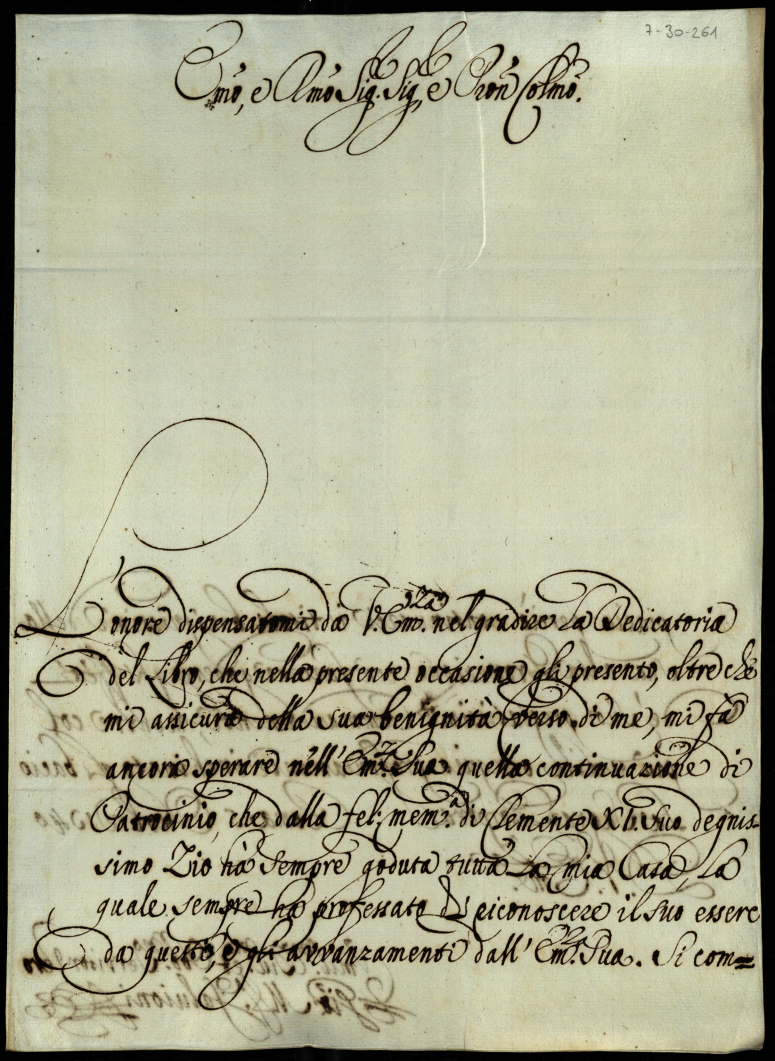 7-30-261
Emo, e Rmo Sig. Sig, e Pron Colmo.
L'onore dispensatomi da V. Em.za nel gradire la Dedicatoria
del Libro, che nella presente occasione gli presento, oltre che
mi assicura della sua benignità verso di me, mi fà
ancora sperare nell' Em.za Sua quella continuazione di
Patrocinio, che dalla fel: mem.a di Clemente XI. suo degnis-
simo Zio hà sempre goduta tutta la mia Casa, la
quale sempre ha professato di riconoscere il suo essere
da quello, e gli avvanzamenti dall' Em.za Sua. Si com=